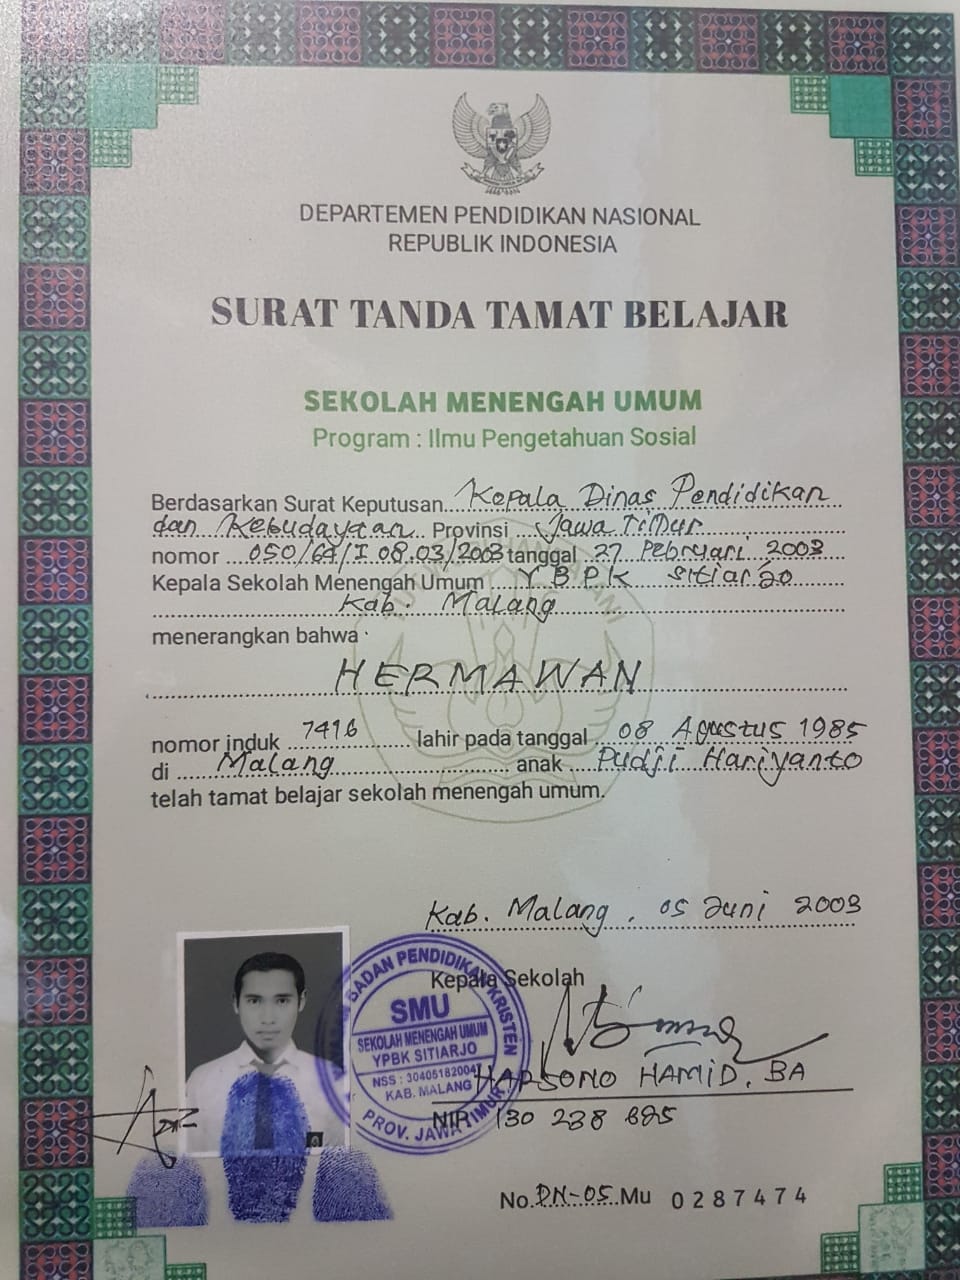 DEPARTEMEN PENDIDIKAN NASIONAL
REPUBLIK INDONESIA
SURAT TANDA TAMAT BELAJAR
SEKOLAH MENENGAH UMUM
Program : Ilmu Pengetahuan Sosial
Berdasarkan Surat Keputusan Kepala Dinas Pendidikan
dan Kebudayaan Provinsi Jawa Timur
nomor 050/64/I 08.03/2003 tanggal 27 Pebruari 2003
Kepala Sekolah Menengah Umum YBPK Sitiarjo
Kab. Malang
menerangkan bahwa
HERMAWAN
nomor induk 7416 lahir pada tanggal 08 Agustus 1985
di Malang anak Pudji Hariyanto
telah tamat belajar sekolah menengah umum.
Kab. Malang, 05 Juni 2003
Kepala Sekolah
BADAN PENDIDIKAN KRISTEN
SMU
SEKOLAH MENENGAH UMUM
YPBK SITIARJO
NSS : 304051820047
KAB. MALANG
PROV. JAWA TIMUR
HARSONO HAMID, BA
NIP 130 238 685
No. DN-05 Mu 0287474